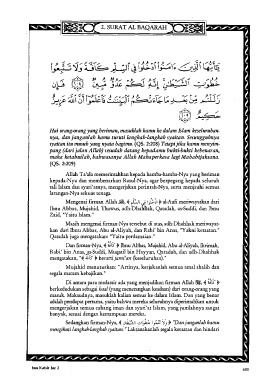 2. SURAT AL BAQARAH
يَٰٓأَيُّهَا ٱلَّذِينَ ءَامَنُوا۟ ٱدْخُلُوا۟ فِى ٱلسِّلْمِ كَآفَّةً وَلَا تَتَّبِعُوا۟
خُطُوَٰتِ ٱلشَّيْطَٰنِ إِنَّهُۥ لَكُمْ عَدُوٌّ مُّبِينٌ ﴿٢٠٨﴾ فَإِن
زَلَلْتُم مِّنۢ بَعْدِ مَا جَآءَتْكُمُ ٱلْبَيِّنَٰتُ فَٱعْلَمُوٓا۟ أَنَّ ٱللَّهَ عَزِيزٌ
حَكِيمٌ ﴿٢٠٩﴾
Hai orang-orang yang beriman, masuklah kamu ke dalam Islam keseluruhan-
nya, dan janganlah kamu turuti langkah-langkah syaitan. Sesungguhnya
syaitan itu musuh yang nyata bagimu. (QS. 2:208) Tetapi jika kamu menyim-
pang (dari jalan Allah) sesudah datang kepadamu bukti-bukti kebenaran,
maka ketahuilah, bahwasanya Allah Mahaperkasa lagi Mahabijaksana.
(QS. 2:209)
Allah Ta'ala memerintahkan kepada hamba-hamba-Nya yang beriman
kepada-Nya dan membenarkan Rasul-Nya, agar berpegang kepada seluruh
tali Islam dan syari'atnya, mengerjakan perintah-Nya, serta menjauhi semua
larangan-Nya sekuat tenaga.
Mengenai firman Allah ﴿ ادْخُلُوا فِي السِّلْمِ ﴾ al-Aufi meriwayatkan dari
Ibnu Abbas, Mujahid, Thawus, adh-Dhahhak, Qatadah, as-Suddi, dan Ibnu
Zaid, "Yaitu Islam."
Masih mengenai firman-Nya tersebut di atas, adh-Dhahhak meriwayat-
kan dari Ibnu Abbas, Abu al-Aliyah, dan Rabi' bin Anas, "Yakni ketaatan."
Qatadah juga mengatakan: "Yaitu perdamaian."
Dan firman-Nya, ﴿ كَافَّةً ﴾ Ibnu Abbas, Mujahid, Abu al-Aliyah, Ikrimah,
Rabi' bin Anas, as-Suddi, Muqatil bin Hayyan, Qatadah, dan adh-Dhahhak
mengatakan, ﴿ كَافَّةً ﴾ berarti
Mujahid menuturkan: "Artinya, kerjakanlah semua amal shalih dan
segala macam kebajikan."
Di antara para mufassir ada yang menjadikan firman Allah ﴿ كَافَّةً ﴾
berkedudukan sebagai haal (yang menerangkan keadaan) dari orang-orang yang
masuk. Maksudnya, masuklah kalian semua ke dalam Islam. Dan yang benar
adalah pendapat pertama, yaitu bahwa mereka seluruhnya diperintahkan untuk
mengerjakan semua cabang iman dan syari'at Islam, yang jumlahnya sangat
banyak, sesuai dengan kemampuan mereka.
Sedangkan firman-Nya, ﴿ وَلَا تَتَّبِعُوا خُطُوَاتِ الشَّيْطَانِ ﴾ "Dan janganlah kamu
mengikuti langkah-langkah syaitan." Laksanakanlah segala ketaatan dan hindari
Ibnu Katsir Juz 2